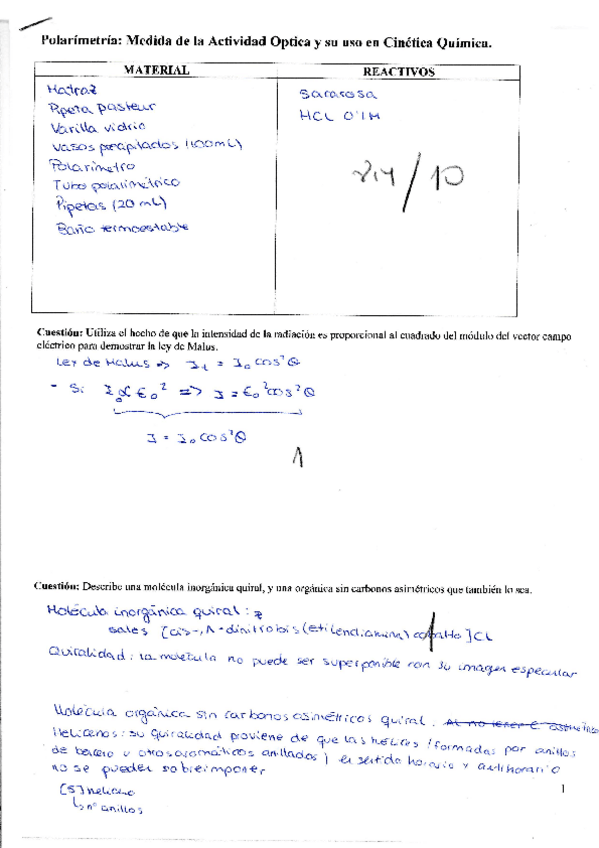 Polarimetría: Medida de la Actividad Optica y su uso en Cinética Química.
MATERIAL
REACTIVOS
Matraz
Pipeta pasteur
Varilla vidrio
vasos precipitados (100mL)
Polarímetro
Tubo polarimétrico
Pipetas (20 mL)
Baño termoestable
Sacarosa
HCL 0'1M
/10
Cuestión: Utiliza el hecho de que la intensidad de la radiación es proporcional al cuadrado del módulo del vector campo
eléctrico para demostrar la ley de Malus.
Ley de Malus => I₁ = I₀ cos²θ
- Si I₀ ∝ E₀² => I = E₀² cos²θ
I = I₀ cos²θ
1
Cuestión: Describe una molécula inorgánica quiral, y una orgánica sin carbonos asimétricos que también lo sea.
Molécula inorgánica quiral:
sales [cis-, Λ-dinitrobis(etilendiamina) cobalto]CL
Quiralidad: La molécula no puede ser superponible con su imagen especular
Molécula orgánica sin carbonos asimétricos quiral:
Helicenos: su quiralidad proviene de que las hélices (formadas por anillos
de benceno u otros aromáticos anillados) en sentido horario y antihorario
no se pueden sobreimponer
[5] heliceno
↳ nº anillos
1